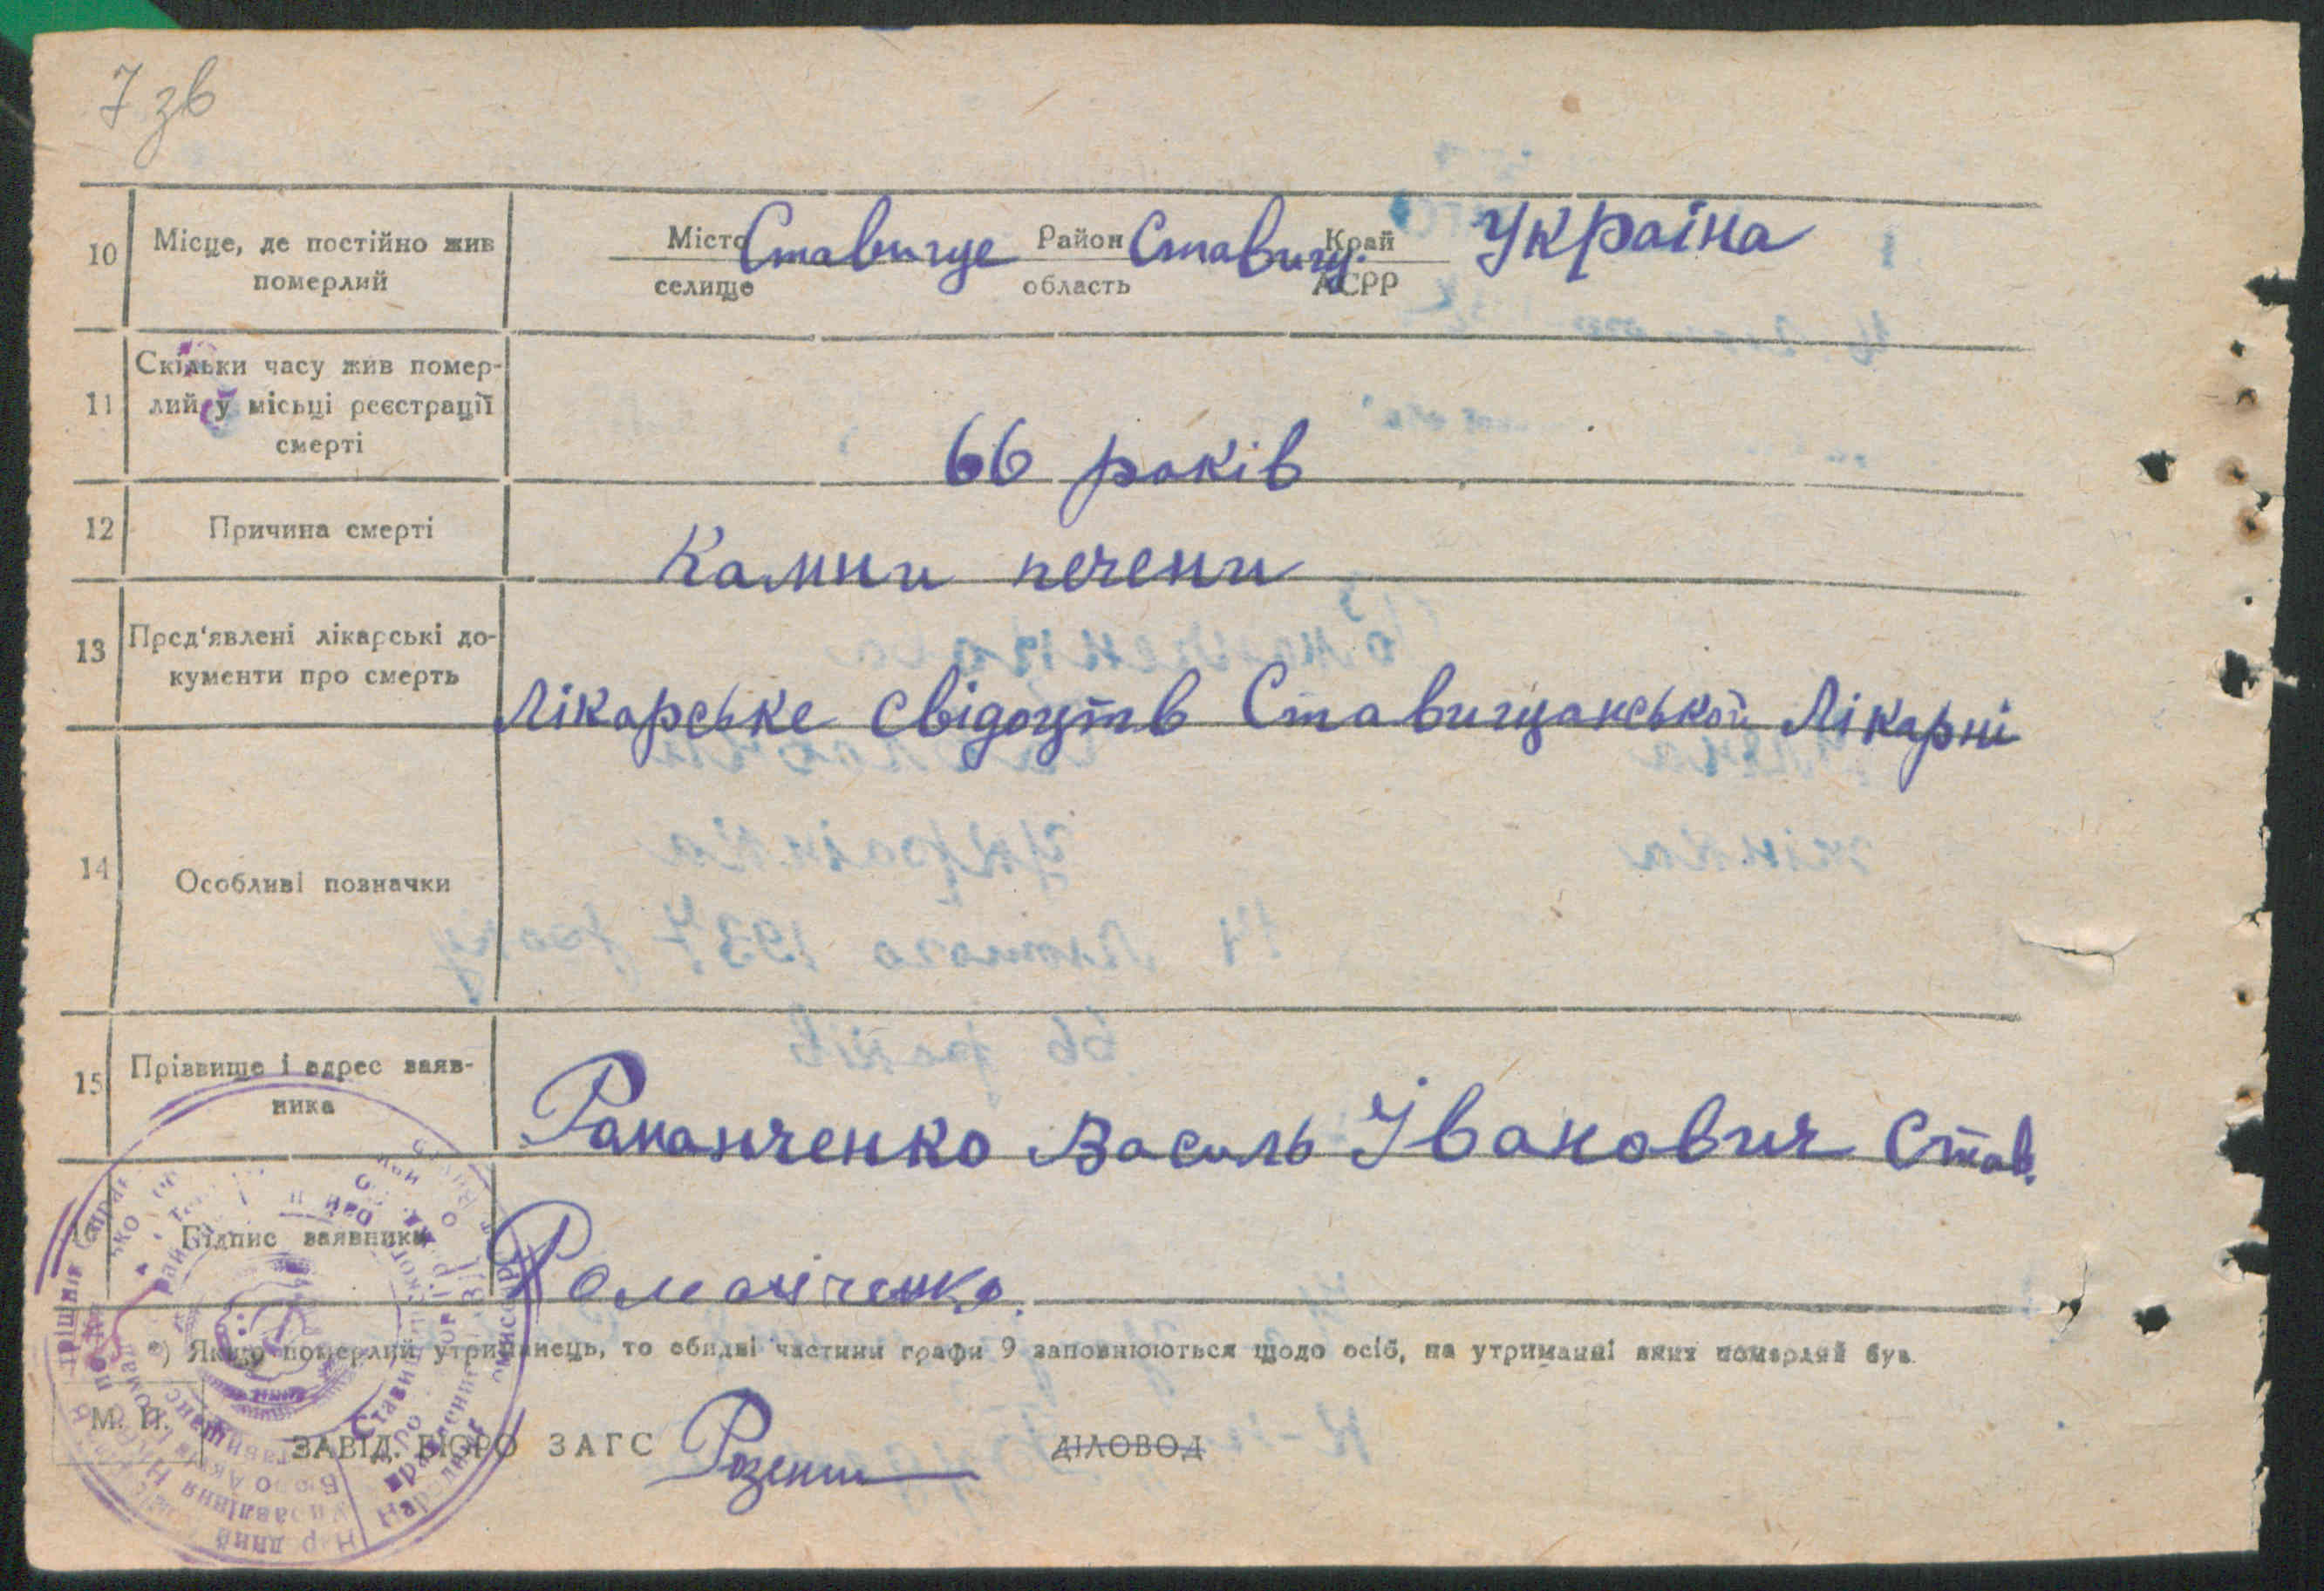 7 зв
10 Місце, де постійно жив померлий
Місто Ставище Район Ставищ. Край Україна
селище область АСРР
11 Скільки часу жив помер-
лий у місьці реєстрації
смерті
66 років
12 Причина смерті
Камни печени
13 Пред'явлені лікарські до-
кументи про смерть
Лікарське свідоцтв Ставищанської Лікарні
14 Особливі позначки
15 Прізвище і адрес заяв-
ника
Раманченко Василь Іванович Став.
Підпис заявника
Романченко.
*) Якщо померлий утриманець, то обидві частини графи 9 заповнюються щодо осіб, на утриманні яких померлий був.
М. П.
ЗАВІД. БЮРО ЗАГС ДІЛОВОД